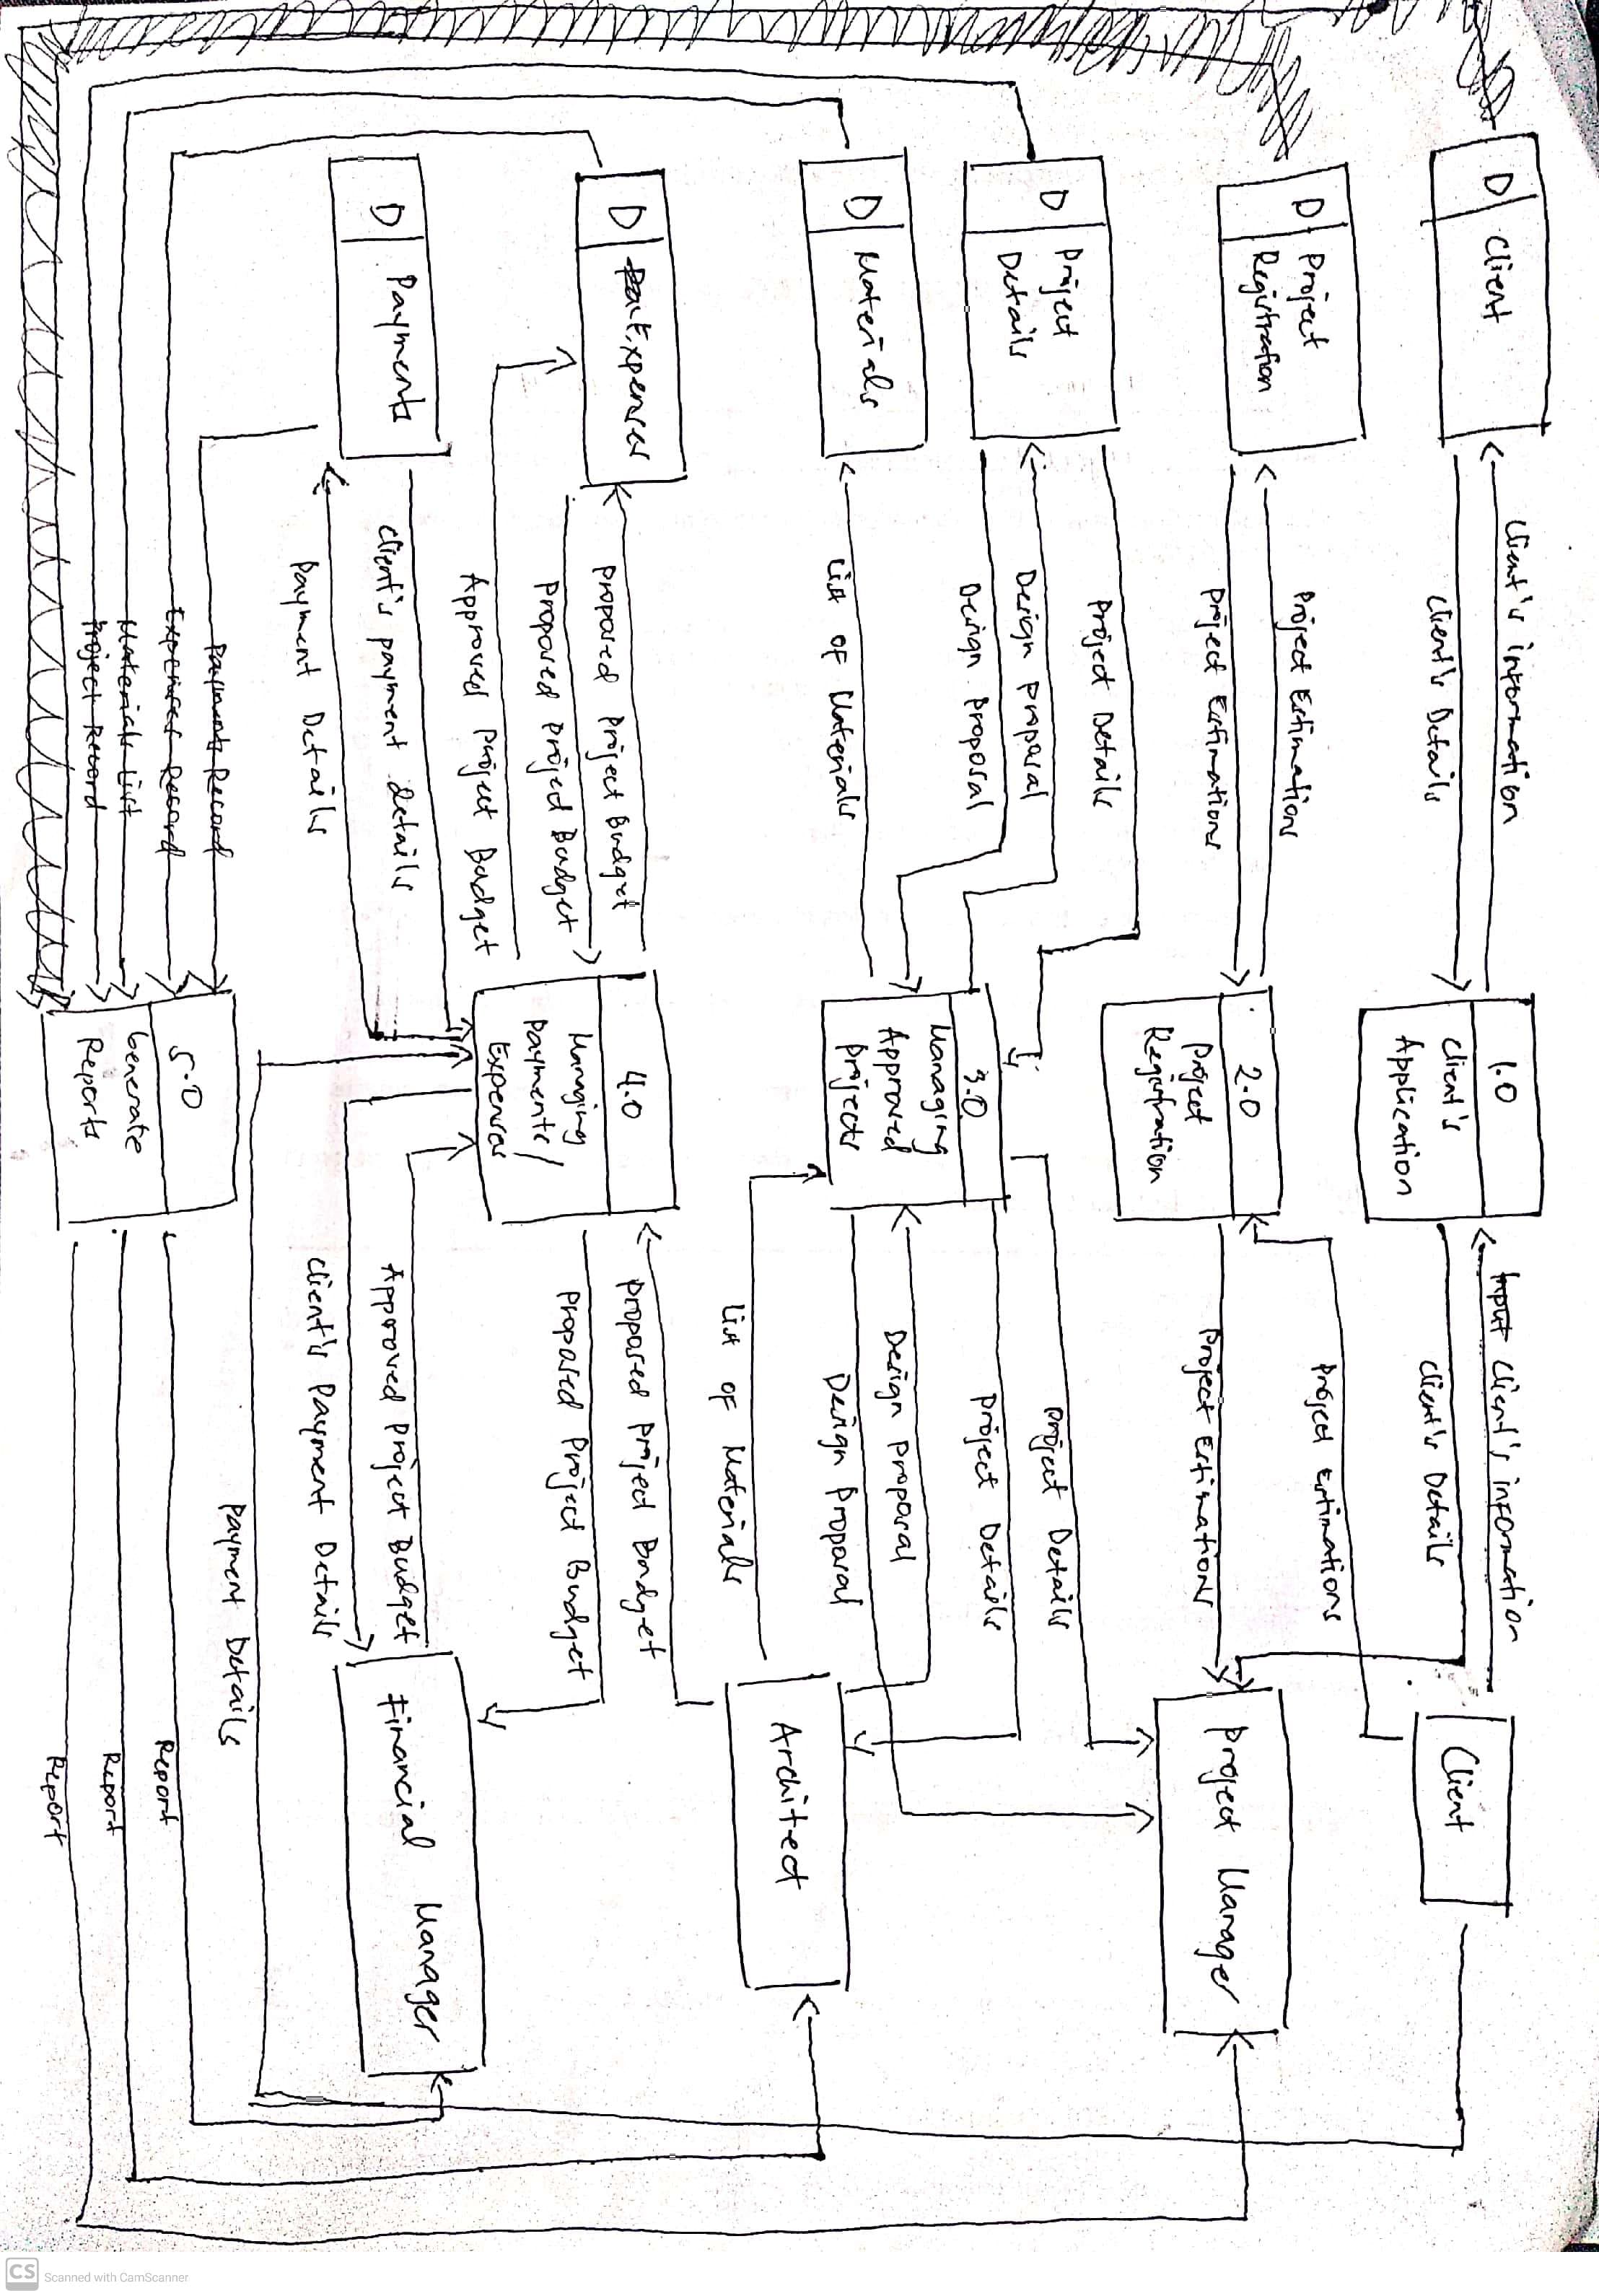 D Client
Client's information
Client's Details
1.0
Client's
Application
Input Client's information
Client's Details
Client
D Project
Registration
Project Estimations
Project Estimations
2.0
Project
Registration
Project Estimations
Project Estimations
Project Manager
D Project
Details
Project Details
Design Proposal
Design Proposal
3.0
Managing
Approved
Projects
Project Details
Project Details
Design Proposal
Design Proposal
D Materials
List of Materials
List of Materials
Architect
D Expenses
Proposed Project Budget
Proposed Project Budget
Approved Project Budget
4.0
Managing
Payments/
Expenses
Proposed Project Budget
Proposed Project Budget
D Payments
Client's payment details
Payment Details
Approved Project Budget
Client's Payment Details
Financial Manager
Payment Details
Payments Record
Expenses Record
Materials List
Project Record
5.0
Generate
Reports
Report
Report
Report
CS Scanned with CamScanner